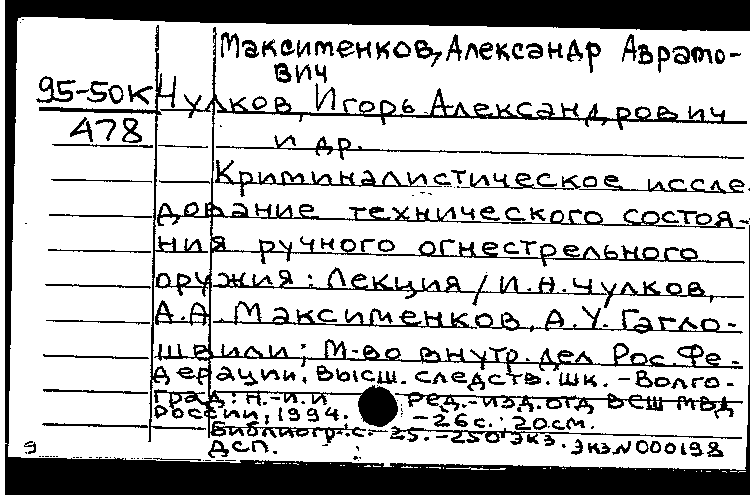 Максименков, Александр Аврамо-
вич
95-50К Чулков, Игорь Александрович
478 и др.
Криминалистическое иссле-
дование технического состоя-
ния ручного огнестрельного
оружия: Лекция / И.Н. Чулков,
А.А. Максименков, А.У. Гагло-
швили; М-во внутр. дел Рос. Фе-
дерации. Высш. следств. шк. - Волго-
град: Н.-и. и ред.-изд. отд ВСШ МВД
России, 1994. - 26с.; 20см.
Библиогр.: с. 25. - 250 экз. Экз. N 000198
9 ДСП.